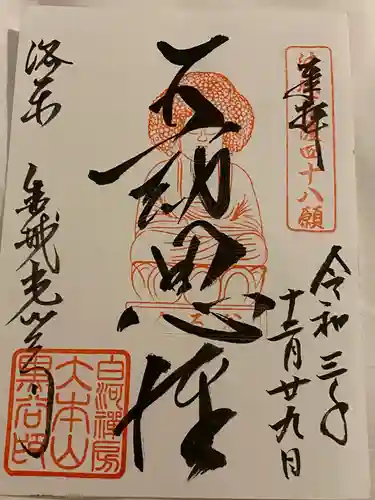 奉拝
四十八願
令和三年
十二月廿九日
五劫思惟
洛東
金戒光明寺
白河禪房
大本山
黒谷